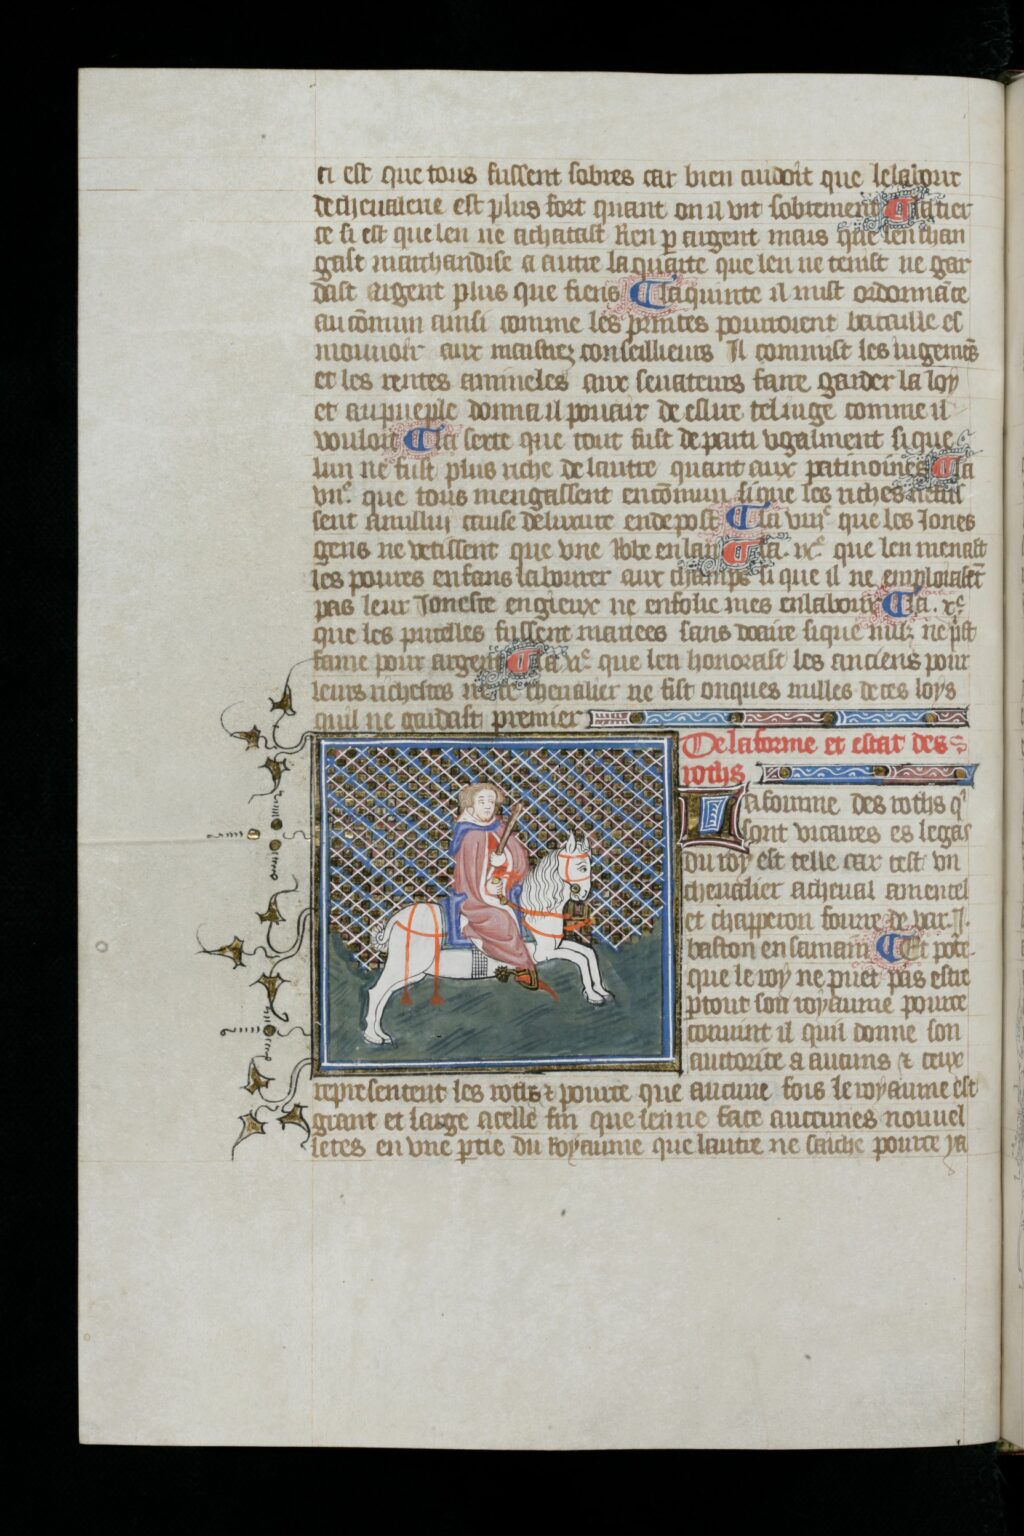 ci est que tous fussent sobres car bien cuidoit que le labour
de cheualerie est plus fort quant on il vit sobrement La tier
ce si est que leu ne achatast Rien p argent mais que len chan
gast marchandise a autre la quarte que leu ne tenist ne gar
dast argent plus que fiens La quinte il mist ordonnāce
au cōmun ainsi comme les princes pourroient bataille es
mouuoir aux maistrez conseilliers Il commist les iugemēs
et les rentes annueles aux senateurs faire garder la loy
et au pueple donna il pouair de eslire tel iuge comme il
vouloit La sexte que tout fust departi ygalment si que
lun ne fust plus riche de lautre quant aux patrimoines La
vııᵉ. que tous mengassent en cōmun si que les riches neus
sent a nullui cause de luxure en depost La vıııᵉ que les Jones
gens ne vetissent que vne Robe en lan La .ıxᵉ. que len menast
les poures enfans labourer aux champs si que il ne emploiassēt
pas leur Jonesce en gieux ne en folie mes en labour La .xᵉ
que les pucelles fussent mariees sans doaire si que nulz ne pst
fame pour argent La xıᵉ que len honorast les anciens pour
leurs richesces ne ce cheualier ne fist onques nulles de ces loys
quil ne gardast premier
De la forme et estat des
rochs
La fourme des rochs qⁱ
sont vicaires es legas
du roy est telle car cest vn
cheualier a cheual a mentel
et chapperon fourre de vair .J.
baston en sa main Et poᵉ
que le roy ne puet pas estre
ptout son royaume pource
conuint il quil donne son
auctorite a aucuns ⁊ ceux
representent les rochs ⁊ pource que aucune fois le royaume est
grant et large a celle fin que len ne face aucunes nouuel
letes en vne ptie du Royaume que lautre ne saiche pource ja